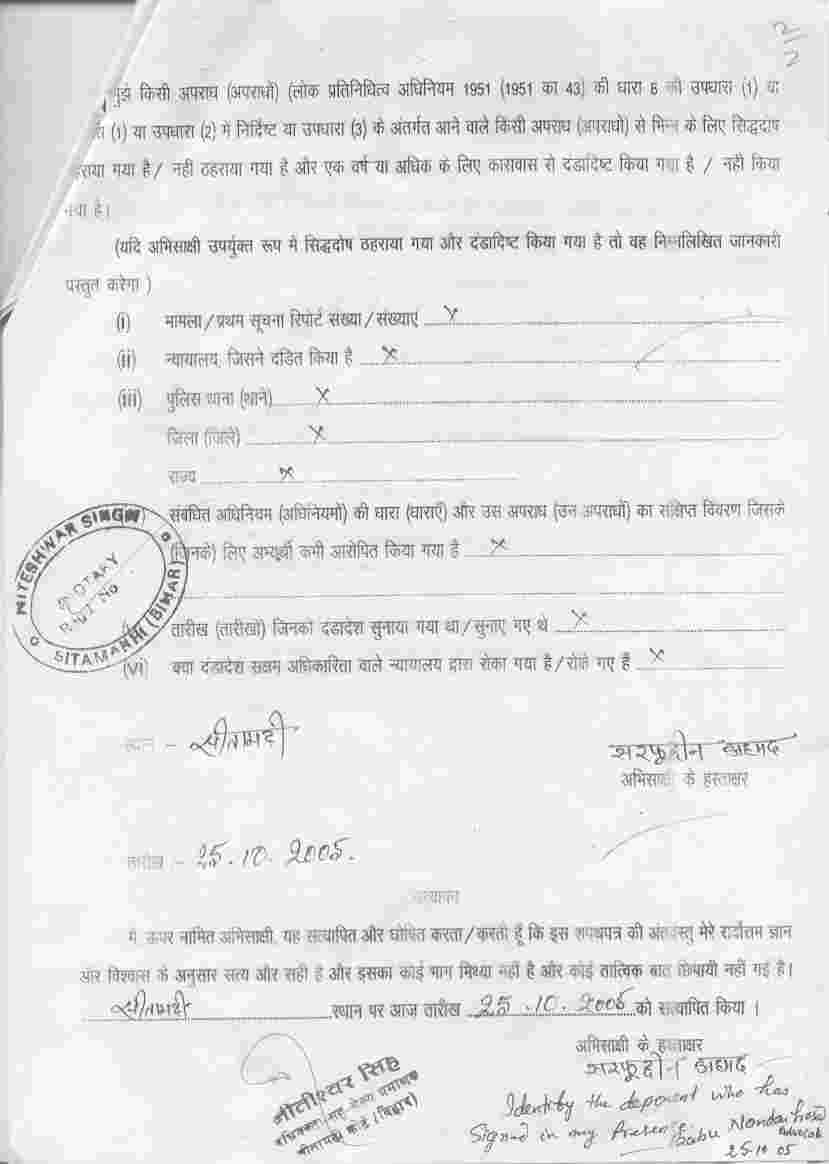 2/2
मुझे किसी अपराध (अपराधों) (लोक प्रतिनिधित्व अधिनियम 1951 (1951 का 43) की धारा 8 की उपधारा (1) या
(1) या उपधारा (2) में निर्दिष्ट या उपधारा (3) के अंतर्गत आने वाले किसी अपराध (अपराधों) से भिन्न के लिए सिद्धदोष
ठहराया गया है / नहीं ठहराया गया है और एक वर्ष या अधिक के लिए कारावास से दंडादिष्ट किया गया है / नहीं किया
गया है।
(यदि अभिसाक्षी उपर्युक्त रूप में सिद्धदोष ठहराया गया और दंडादिष्ट किया गया है तो वह निम्नलिखित जानकारी
प्रस्तुत करेगा)
(i) मामला / प्रथम सूचना रिपोर्ट संख्या / संख्याएं x
(ii) न्यायालय, जिसने दंडित किया है x
(iii) पुलिस थाना (थाने) x
जिला (जिले) x
राज्य x
संबंधित अधिनियम (अधिनियमों) की धारा (धाराएँ) और उस अपराध (उन अपराधों) का संक्षिप्त विवरण जिसके
(जिनके) लिए अभ्यर्थी कभी आरोपित किया गया है x
NITESHWAR SINGH
NOTARY
SITAMARHI (BIHAR)
तारीख (तारीखों) जिनको दंडादेश सुनाया गया था / सुनाए गए थे x
(vi) क्या दंडादेश सक्षम अधिकारिता वाले न्यायालय द्वारा रोका गया है / रोके गए हैं x
स्थान - सीतामढ़ी
सरफूद्दीन अहमद
अभिसाक्षी के हस्ताक्षर
तारीख - 25.10.2005.
सत्यापन
मैं ऊपर नामित अभिसाक्षी, यह सत्यापित और घोषित करता / करती हूँ कि इस शपथपत्र की अंतर्वस्तु मेरे सर्वोत्तम ज्ञान
और विश्वास के अनुसार सत्य और सही है और इसका कोई भाग मिथ्या नहीं है और कोई तात्विक बात छिपायी नहीं गई है।
सीतामढ़ी स्थान पर आज तारीख 25.10.2005 को सत्यापित किया।
अभिसाक्षी के हस्ताक्षर
सरफूद्दीन अहमद
नीतीश्वर सिंह
सीतामढ़ी कोर्ट (बिहार)
Identify the deponent who has
Signed in my Presence.
Babu Nandan
Advocate
25.10.05